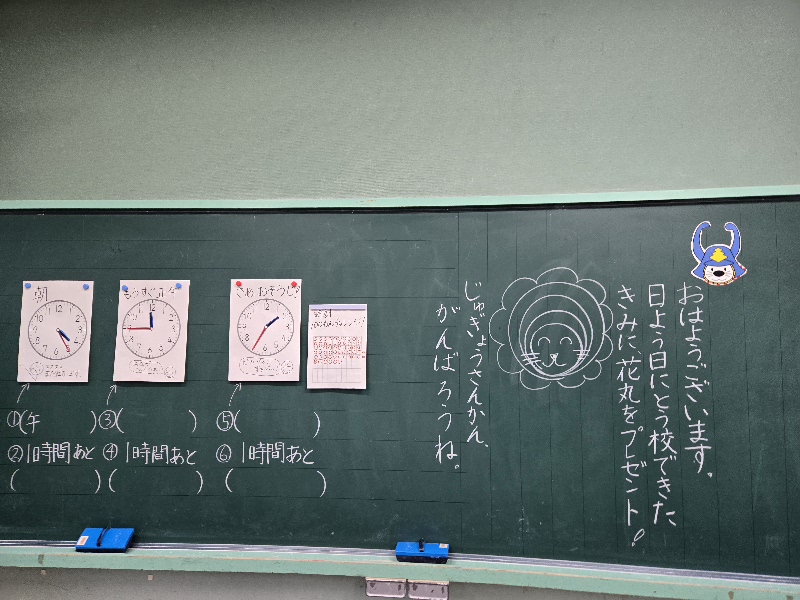 おはようございます。
日よう日にとう校できた
きみに花丸をプレゼント!
じゅぎょうさんかん、
がんばろうね。
朝
もうすぐ
①(午　　)
②1時間あと
(　　)
③(　　)
④1時間あと
(　　)
⑤(　　)
⑥1時間あと
(　　)